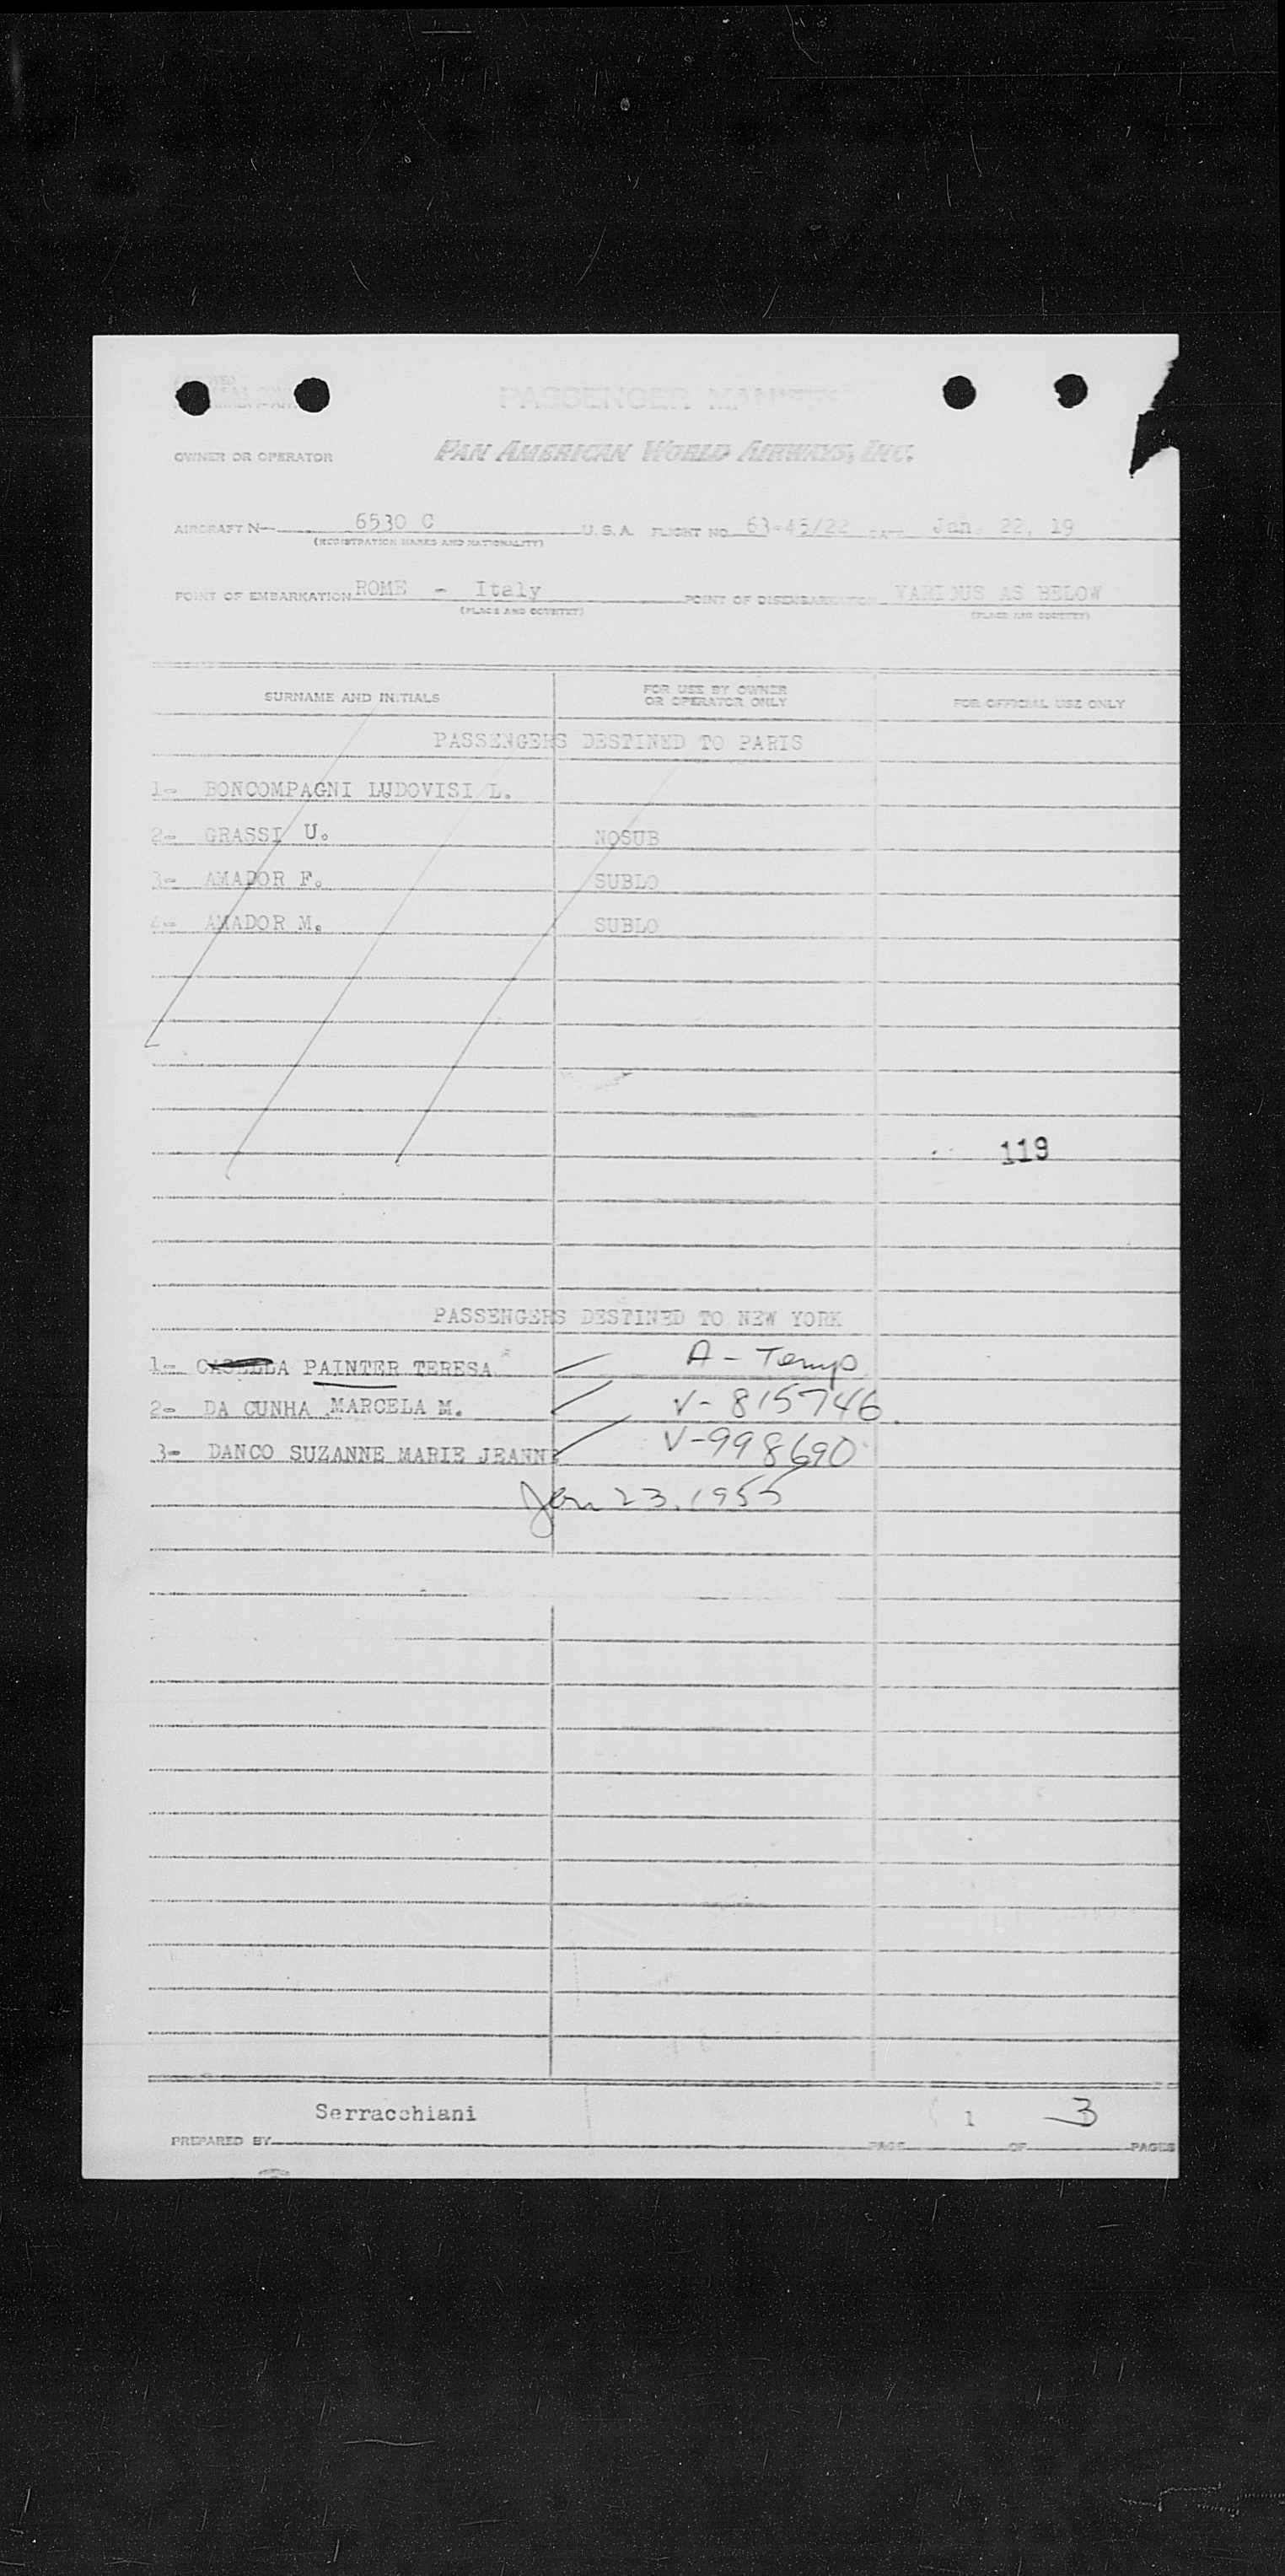 PASSENGER MANIFEST
OWNER OR OPERATOR PAN AMERICAN WORLD AIRWAYS, INC.
AIRCRAFT N- 6530 C U. S. A. FLIGHT NO. 63-45/22 DATE Jan. 22, 19
(REGISTRATION MARKS AND NATIONALITY)
POINT OF EMBARKATION ROME - Italy POINT OF DISEMBARKATION VARIOUS AS BELOW
(PLACE AND COUNTRY) (PLACE AND COUNTRY)
SURNAME AND INITIALS FOR USE BY OWNER OR OPERATOR ONLY FOR OFFICIAL USE ONLY
PASSENGERS DESTINED TO PARIS
1- BONCOMPAGNI LUDOVISI L.
2- GRASSI U. NOSUB
3- AMADOR F. SUBLO
4- AMADOR M. SUBLO
119
PASSENGERS DESTINED TO NEW YORK
1- CASELLA PAINTER TERESA A - Temp
2- DA CUNHA MARCELA M. V- 815746
3- DANCO SUZANNE MARIE JEANNE V-998690
Jan 23, 1955
Serracchiani 1 3
PREPARED BY PAGE OF PAGES